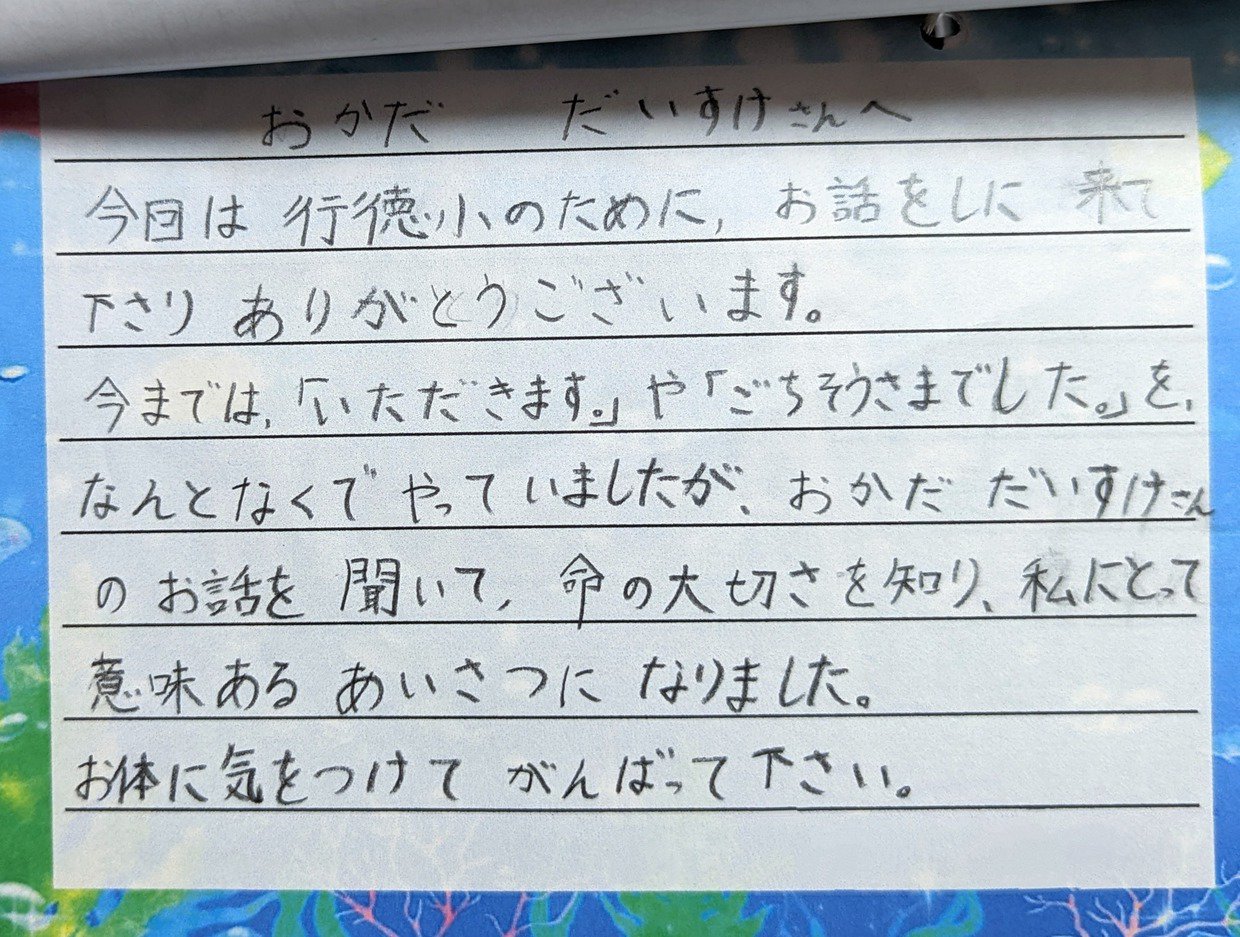 おかだ　だいすけさんへ
今回は行徳小のために、お話をしに来て
下さりありがとうございます。
今までは、「いただきます。」や「ごちそうさまでした。」を、
なんとなくでやっていましたが、おかだ だいすけさん
のお話を聞いて、命の大切さを知り、私にとって
意味あるあいさつになりました。
お体に気をつけてがんばって下さい。